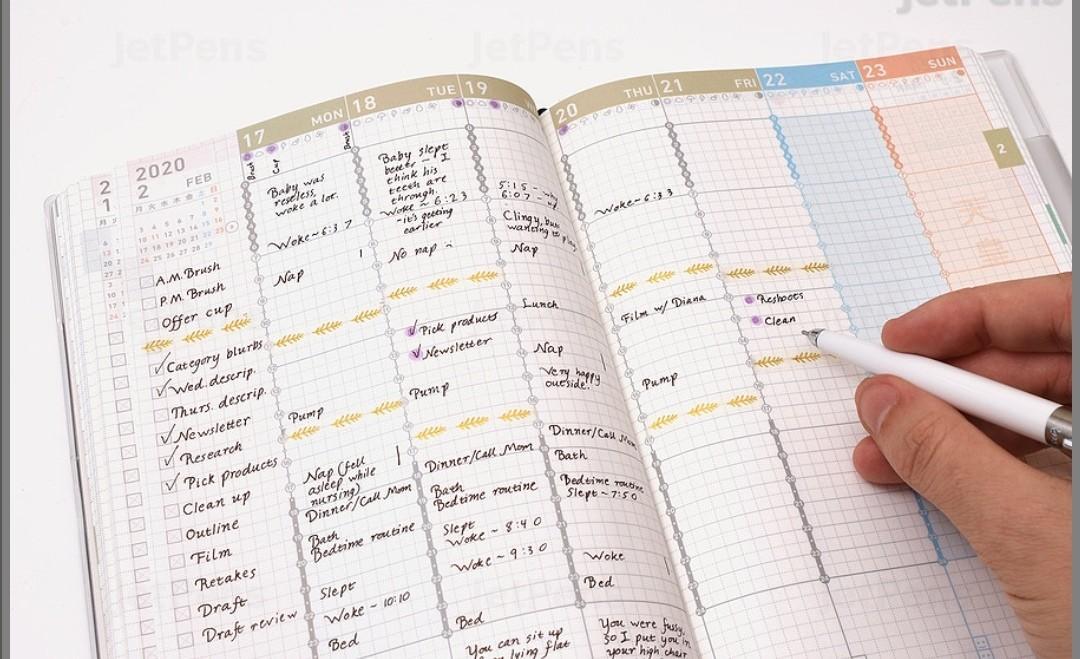 JetPens
JetPens
JetPens
JetPens
2
1
2020
2 FEB
A.M. Brush
P.M. Brush
Offer cup
✓ Category blurbs
✓ Wed. descrip.
Thurs. descrip.
✓ Newsletter
✓ Research
✓ Pick products
Clean up
Outline
Film
Retakes
Draft
Draft review
17 MON
Brush
Cup
Brush
Baby was
restless,
woke a lot.
Woke ~ 6:37
Nap
Pump
Nap (fell
asleep while
nursing)
Dinner/Call Mom
Bath
Bedtime routine
Slept
Woke ~ 10:10
Bed
18 TUE
Baby slept
better – I
think his
teeth are
through.
Woke ~ 6:23
– it's getting
earlier
No nap
✓ Pick products
✓ Newsletter
Pump
Dinner/Call Mom
Bath
Bedtime routine
Slept
Woke ~ 8:40
Woke ~ 9:30
Bed
You can sit up
lying flat
19
5:15 -
6:07 -
Clingy, but
wanting to play
Nap
Lunch
Nap
Very happy
outside!
Dinner/Call Mom
Bath
Bedtime routine
Slept ~ 7:50
Woke
Bed
You were fussy,
so I put you in
your high chair
20 THU
Woke ~ 6:33
Film w/ Diana
Pump
21 FRI
Reshoots
Clean
22 SAT
23 SUN
2